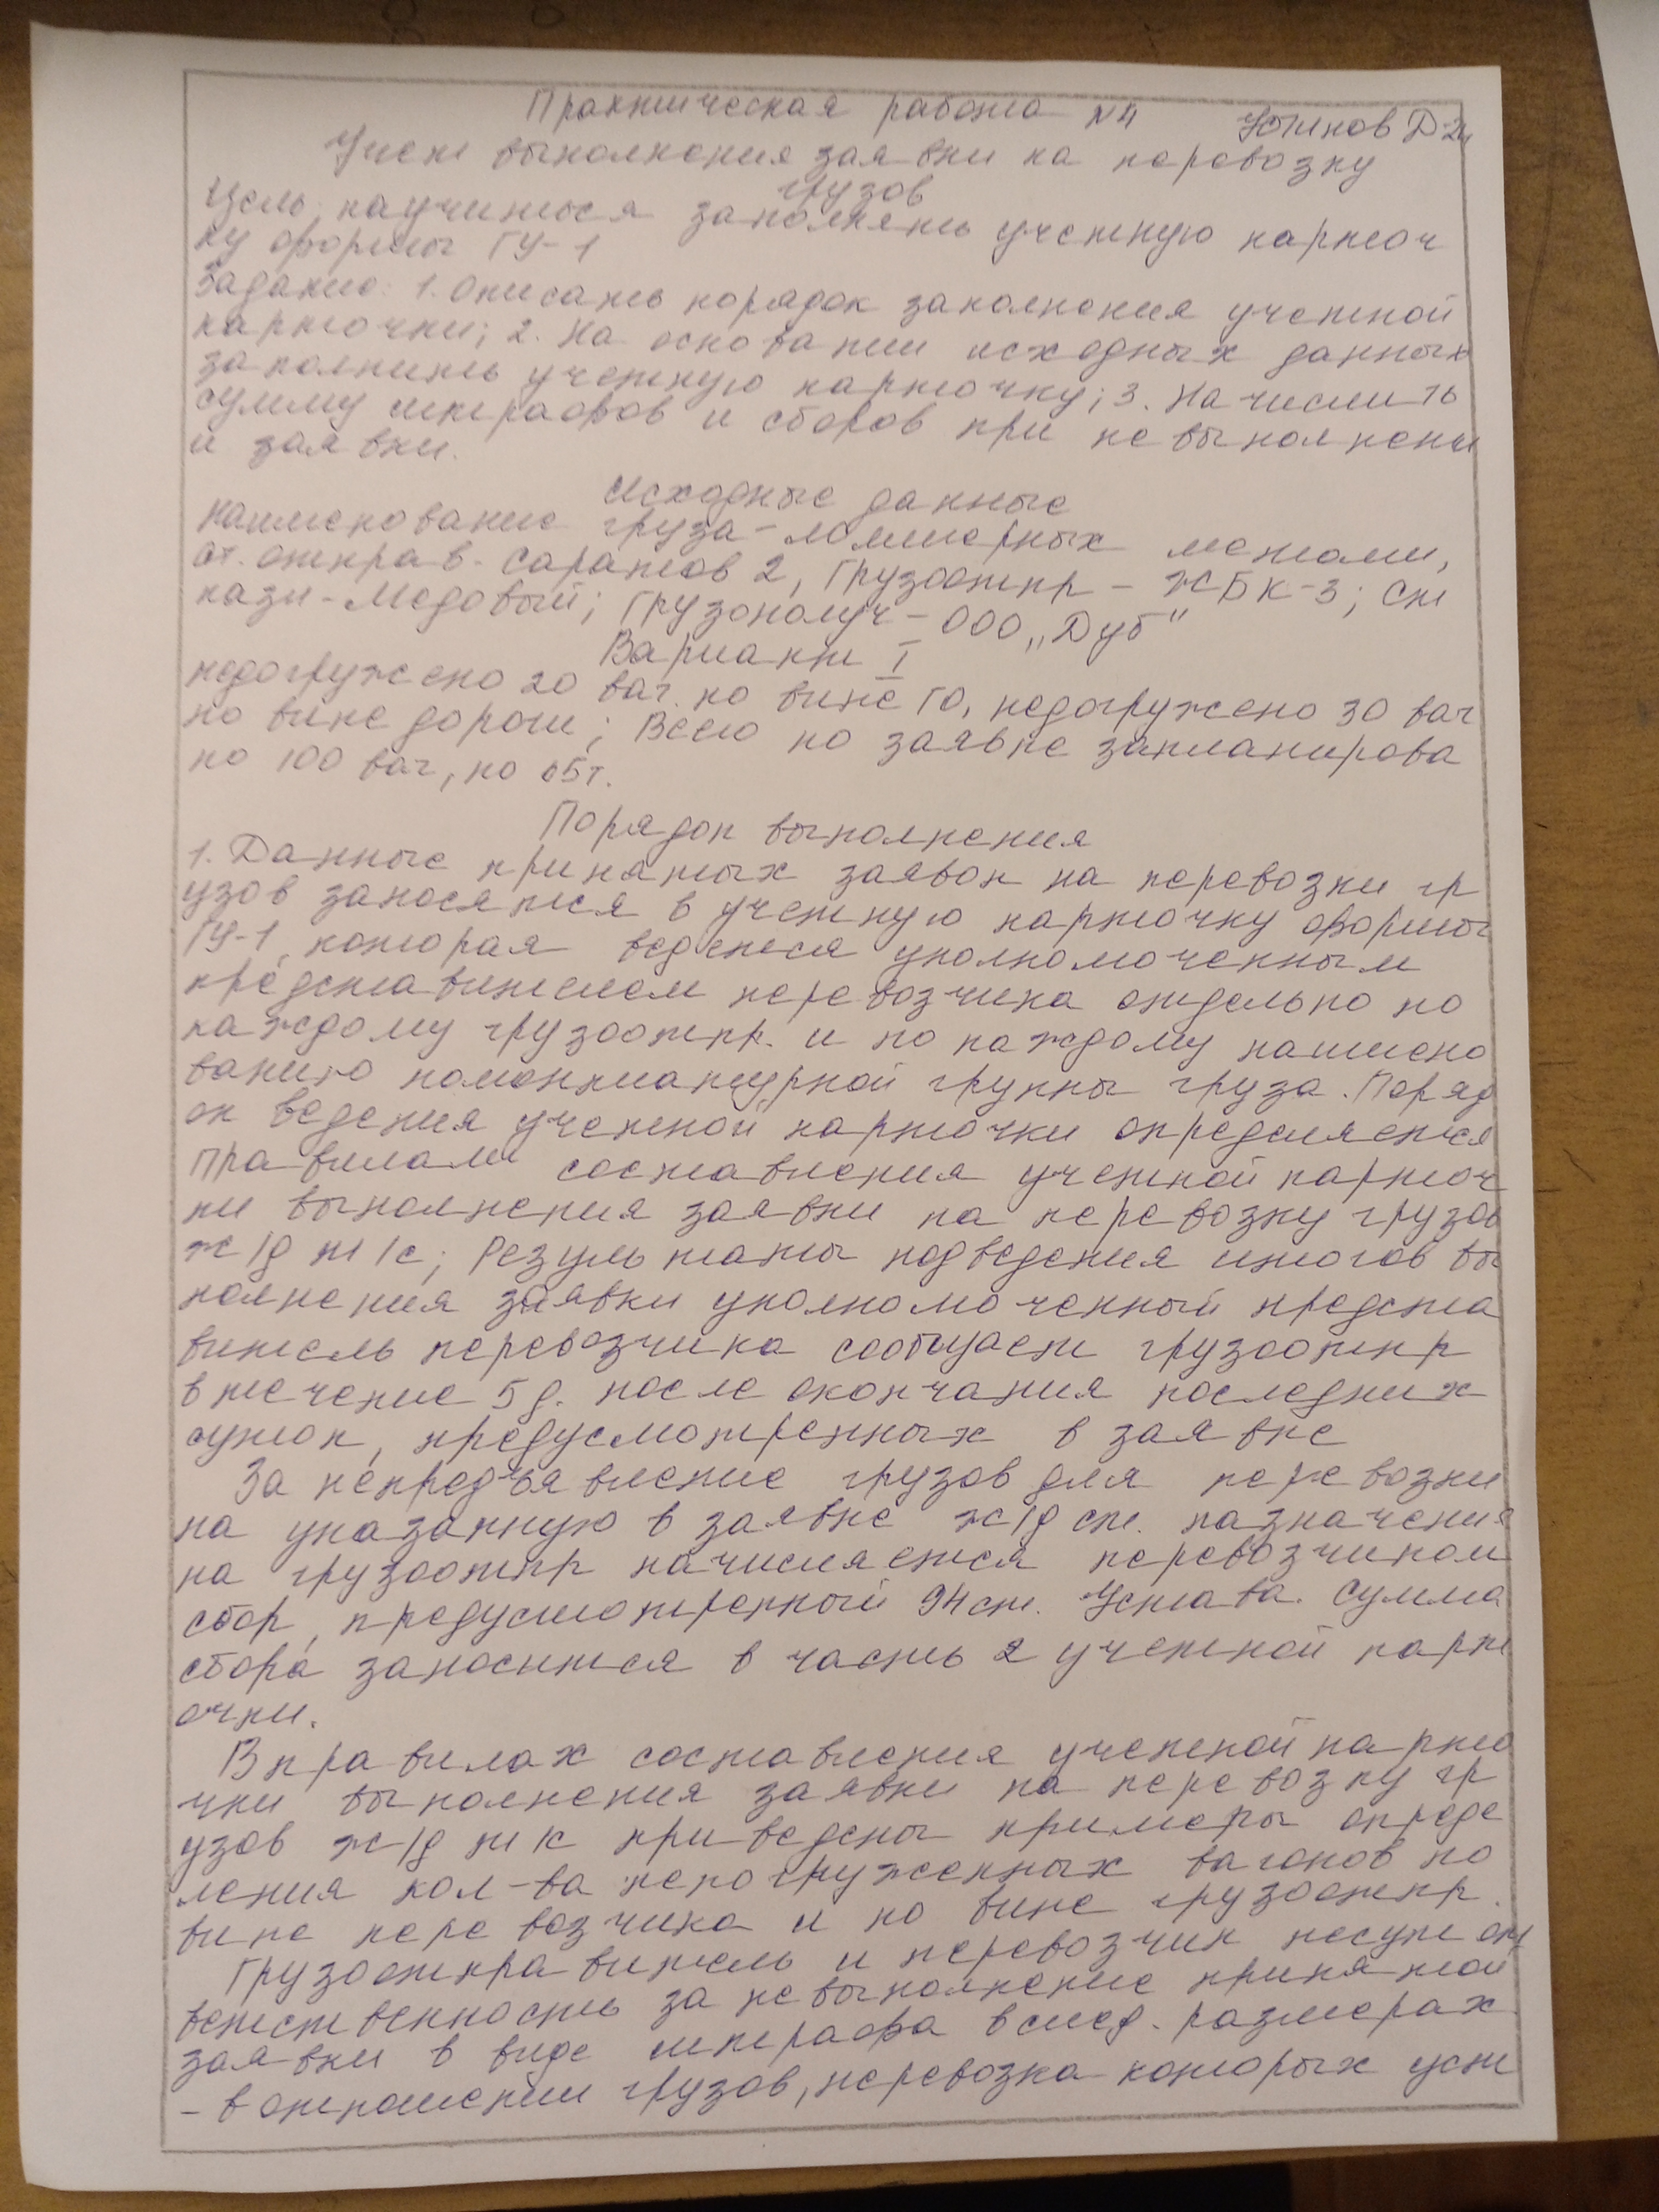 Практическая работа №4
Устинов Д-2
Учет выполнения заявки на перевозку
грузов
Цель: научиться заполнять учетную карточ
ку формы ГУ-1
Задание: 1. Описать порядок заполнения учетной
карточки; 2. На основании исходных данных
заполнить учетную карточку; 3. Начислить
сумму штрафов и сборов при невыполнени
и заявки.
Исходные данные
Наименование груза - металл,
ст. отправ. Саратов 2, Грузоотпр - ЖБК-3; Ст
назн - Медовый; Грузополуч - ООО „Дуб"
Вариант I
недогружено 20 ваг. по вине ГО, недогружено 30 ваг
по вине дороги; Всего по заявке запланирова
но 100 ваг, по 65т.
Порядок выполнения
1. Данные принятых заявок на перевозки гр
узов заносятся в учетную карточку формы
ГУ-1, которая ведется уполномоченным
представителем перевозчика отдельно по
каждому грузоотпр. и по каждому наимено
ванию номенклатурной группы груза. Поряд
ок ведения учетной карточки определяется
Правилами составления учетной карточ
ки выполнения заявки на перевозку грузов
ж/д т/с; Результаты подведения итогов вы
полнения заявки уполномоченный предста
витель перевозчика сообщает грузоотпр
в течение 5 д. после окончания последних
суток, предусмотренных в заявке
За непредъявление грузов для перевозки
на указанную в заявке ж/д ст. назначения
на грузоотпр начисляется перевозчиком
сбор, предусмотренный 94 ст. Устава. Сумма
сбора заносится в часть 2 учетной карт
очки.
В правилах составления учетной карто
чки выполнения заявки на перевозку гр
узов ж/д т к приведены примеры опреде
ления кол-ва непогруженных вагонов по
вине перевозчика и по вине грузоотпр.
Грузоотправитель и перевозчик несут от
ветственность за невыполнение принятой
заявки в виде штрафа в след. размерах
- в отношении грузов, перевозка которых уст